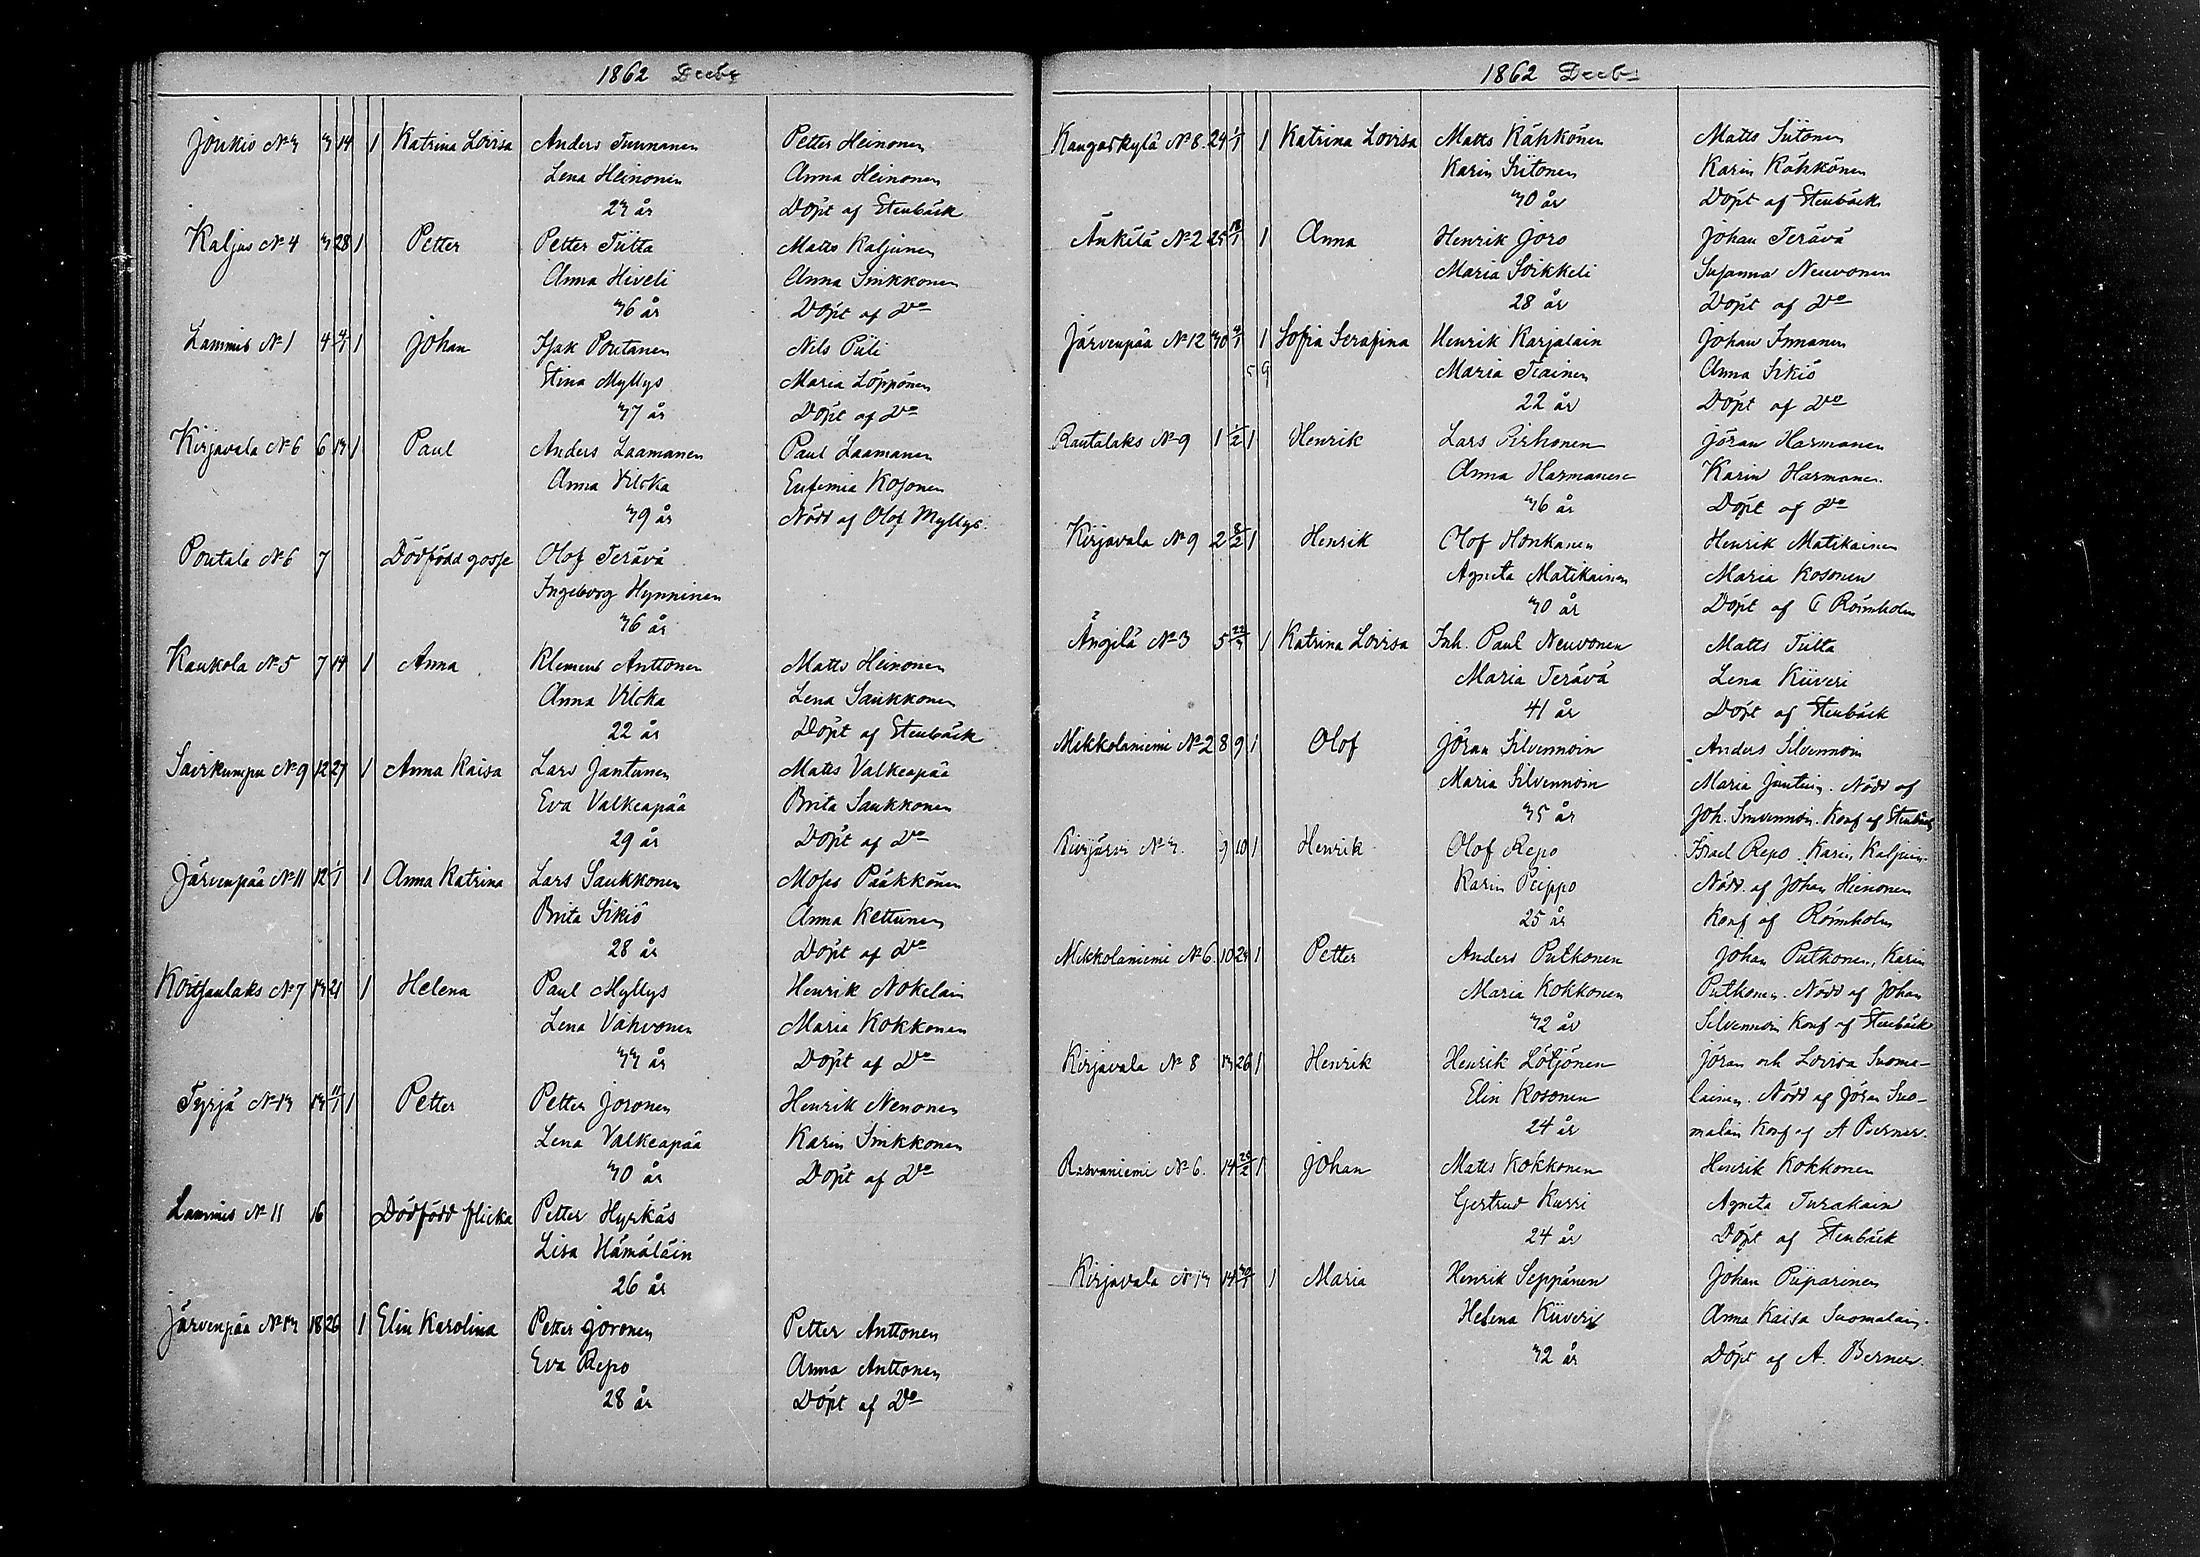 1862 Decbr
Joukio No 3 3 14 1 Katrina Lovisa Anders Tuunanen Petter Heinonen
Lena Heinonen Anna Heinonen
23 år Döpt af Stenbäck
Kaljus No 4 3 28 1 Petter Petter Tiitta Matts Kaljunen
Anna Hiveli Anna Sinkkonen
36 år Döpt af Do
Lammis No 1 4 4/1 1 Johan Isak Poutanen Nils Piili
Stina Myllys Maria Löppönen
37 år Döpt af Do
Kirjavala No 6 6 13 1 Paul Anders Laamanen Paul Laamanen
Anna Vilska Eufemia Kosonen
39 år Nödd af Olof Myllys.
Poutala No 6 7 Dödfödd gosse Olof Terävä
Ingeborg Hynninen
36 år
Kaukola No 5 7 14 1 Anna Klemens Anttonen Matts Heinonen
Anna Vilska Lena Saukkonen
22 år Döpt af Stenbäck
Savikumpu No 9 12 27 1 Anna Kaisa Lars Jantunen Matts Valkeapää
Eva Valkeapää Brita Saukkonen
29 år Döpt af Do
Järvenpää No 11 12 1/1 1 Anna Katrina Lars Saukkonen Moses Pääkkönen
Brita Sikiö Anna Kettunen
28 år Döpt af Do
Koitsanlaks No 7 13 21 1 Helena Paul Myllys Henrik Nokelain
Lena Vahvonen Maria Kokkonen
33 år Döpt af Do
Tyrjä No 13 13 11/1 1 Petter Petter Joronen Henrik Nenonen
Lena Valkeapää Karin Sinkkonen
30 år Döpt af Do
Lammis No 11 16 Dödfödd flicka Petter Hyrkäs
Lisa Hämäläin
26 år
Järvenpää No 13 18 26 1 Elin Karolina Petter Joronen Petter Anttonen
Eva Repo Anna Anttonen
28 år Döpt af Do
1862 Decbr
Kangaskylä No 8. 24 1/1 1 Katrina Lovisa Matts Kähkönen Matts Siitonen
Karin Siitonen Karin Kähkönen
30 år Döpt af Stenbäck
Änkilä No 2 25 18/1 1 Anna Henrik Joro Johan Terävä
Maria Soikkeli Susanna Neuvonen
28 år Döpt af Do
Järvenpää No 12 30 4/1 1 Sofia Serafina Henrik Karjalain Johan Immanen
5 9 Maria Tiainen Anna Sikiö
22 år Döpt af Do
Rautalaks No 9 1 1/2 1 Henrik Lars Pirhonen Jöran Harmanen
Anna Harmanen Karin Harmanen.
36 år Döpt af Do
Kirjavala No 9 2 8/2 1 Henrik Olof Honkanen Henrik Matikainen
Agneta Matikainen Maria Kosonen
30 år Döpt af C Römholm
Ängilä No 3 5 22/3 1 Katrina Lovisa Inh. Paul Neuvonen Matts Tiitta
Maria Terävä Lena Kiiveri
41 år Döpt af Stenbäck
Mikkolaniemi No 2 8 9 1 Olof Jöran Silvennoin Anders Silvennoin
Maria Silvennoin Maria Nödd af
35 år Joh. Konf af Stenbäck
No 3. 9 10 1 Henrik Olof Repo Israel Repo. Karin Kaljuin.
Karin Peippo Nödd af Johan Heinonen
25 år Konf af Römholm
Mikkolaniemi No 6. 10 23 1 Petter Anders Putkonen Johan Putkonen, Karin
Maria Kokkonen Putkonen. Nödd af Johan
32 år Silvennoin Konf af Stenbäck
Kirjavala No 8 13 26 1 Henrik Henrik Lötjönen Jöran och Lovisa Suoma-
Elin Kosonen lainen. Nödd af Jöran Suo-
24 år malain Konf af A Berner.
Rasvaniemi No 6. 14 25/2 1 Johan Matts Kokkonen Henrik Kokkonen
Gertrud Kurri Agneta Turakain
24 år Döpt af Stenbäck
Kirjavala No 13 14 30/1 1 Maria Henrik Seppänen Johan Piiparinen
Helena Kiiveri Anna Kaisa Suomalain.
32 år Döpt af A. Berner.